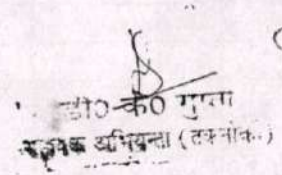 डी० के० गुप्ता
सहायक अभियन्ता (तकनीक.)